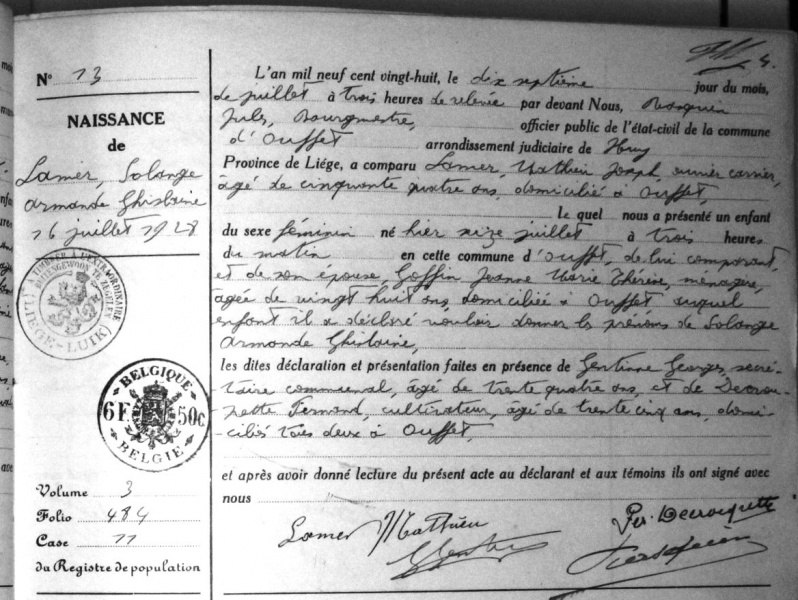 N° 13
NAISSANCE
de
Lamer, Solange
Armande Ghislaine
16 juillet 1928
TIMBRE A L'EXTRAORDINAIRE
BUITENGEWOON TE ZEGELEN
(LIEGE-LUIK)
BELGIQUE
6F 50c
BELGIE
Volume 3
Folio 484
Case 11
du Registre de population
L'an mil neuf cent vingt-huit, le dix septième jour du mois,
de juillet à trois heures de relevée par devant Nous,
Jules, Bourgmestre, officier public de l'état-civil de la commune
d'Ouffet arrondissement judiciaire de Huy
Province de Liége, a comparu Lamer, Mathieu Joseph, ouvrier carrier,
âgé de cinquante quatre ans, domicilié à Ouffet,
le quel nous a présenté un enfant
du sexe féminin né hier seize juillet à trois heures
du matin en cette commune d'Ouffet, de lui comparant,
et de son épouse, Goffin Jeanne Marie Thérèse, ménagère,
âgée de vingt huit ans, domiciliée à Ouffet auquel
enfant il a déclaré vouloir donner les prénoms de Solange
Armande Ghislaine,
les dites déclaration et présentation faites en présence de Georges, secré-
taire communal, âgé de trente quatre ans, et de Decrou-
pette Fernand, cultivateur, âgé de trente cinq ans, domi-
ciliés tous deux à Ouffet,
et après avoir donné lecture du présent acte au déclarant et aux témoins ils ont signé avec
nous
Lamer Mathieu
Decroupette